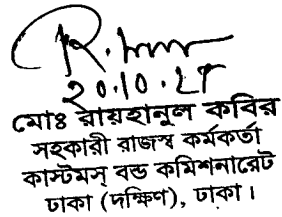 ২০.১০.২৭
মোঃ রায়হানুল কবির
সহকারী রাজস্ব কর্মকর্তা
কাস্টমস্ বন্ড কমিশনারেট
ঢাকা (দক্ষিণ), ঢাকা।